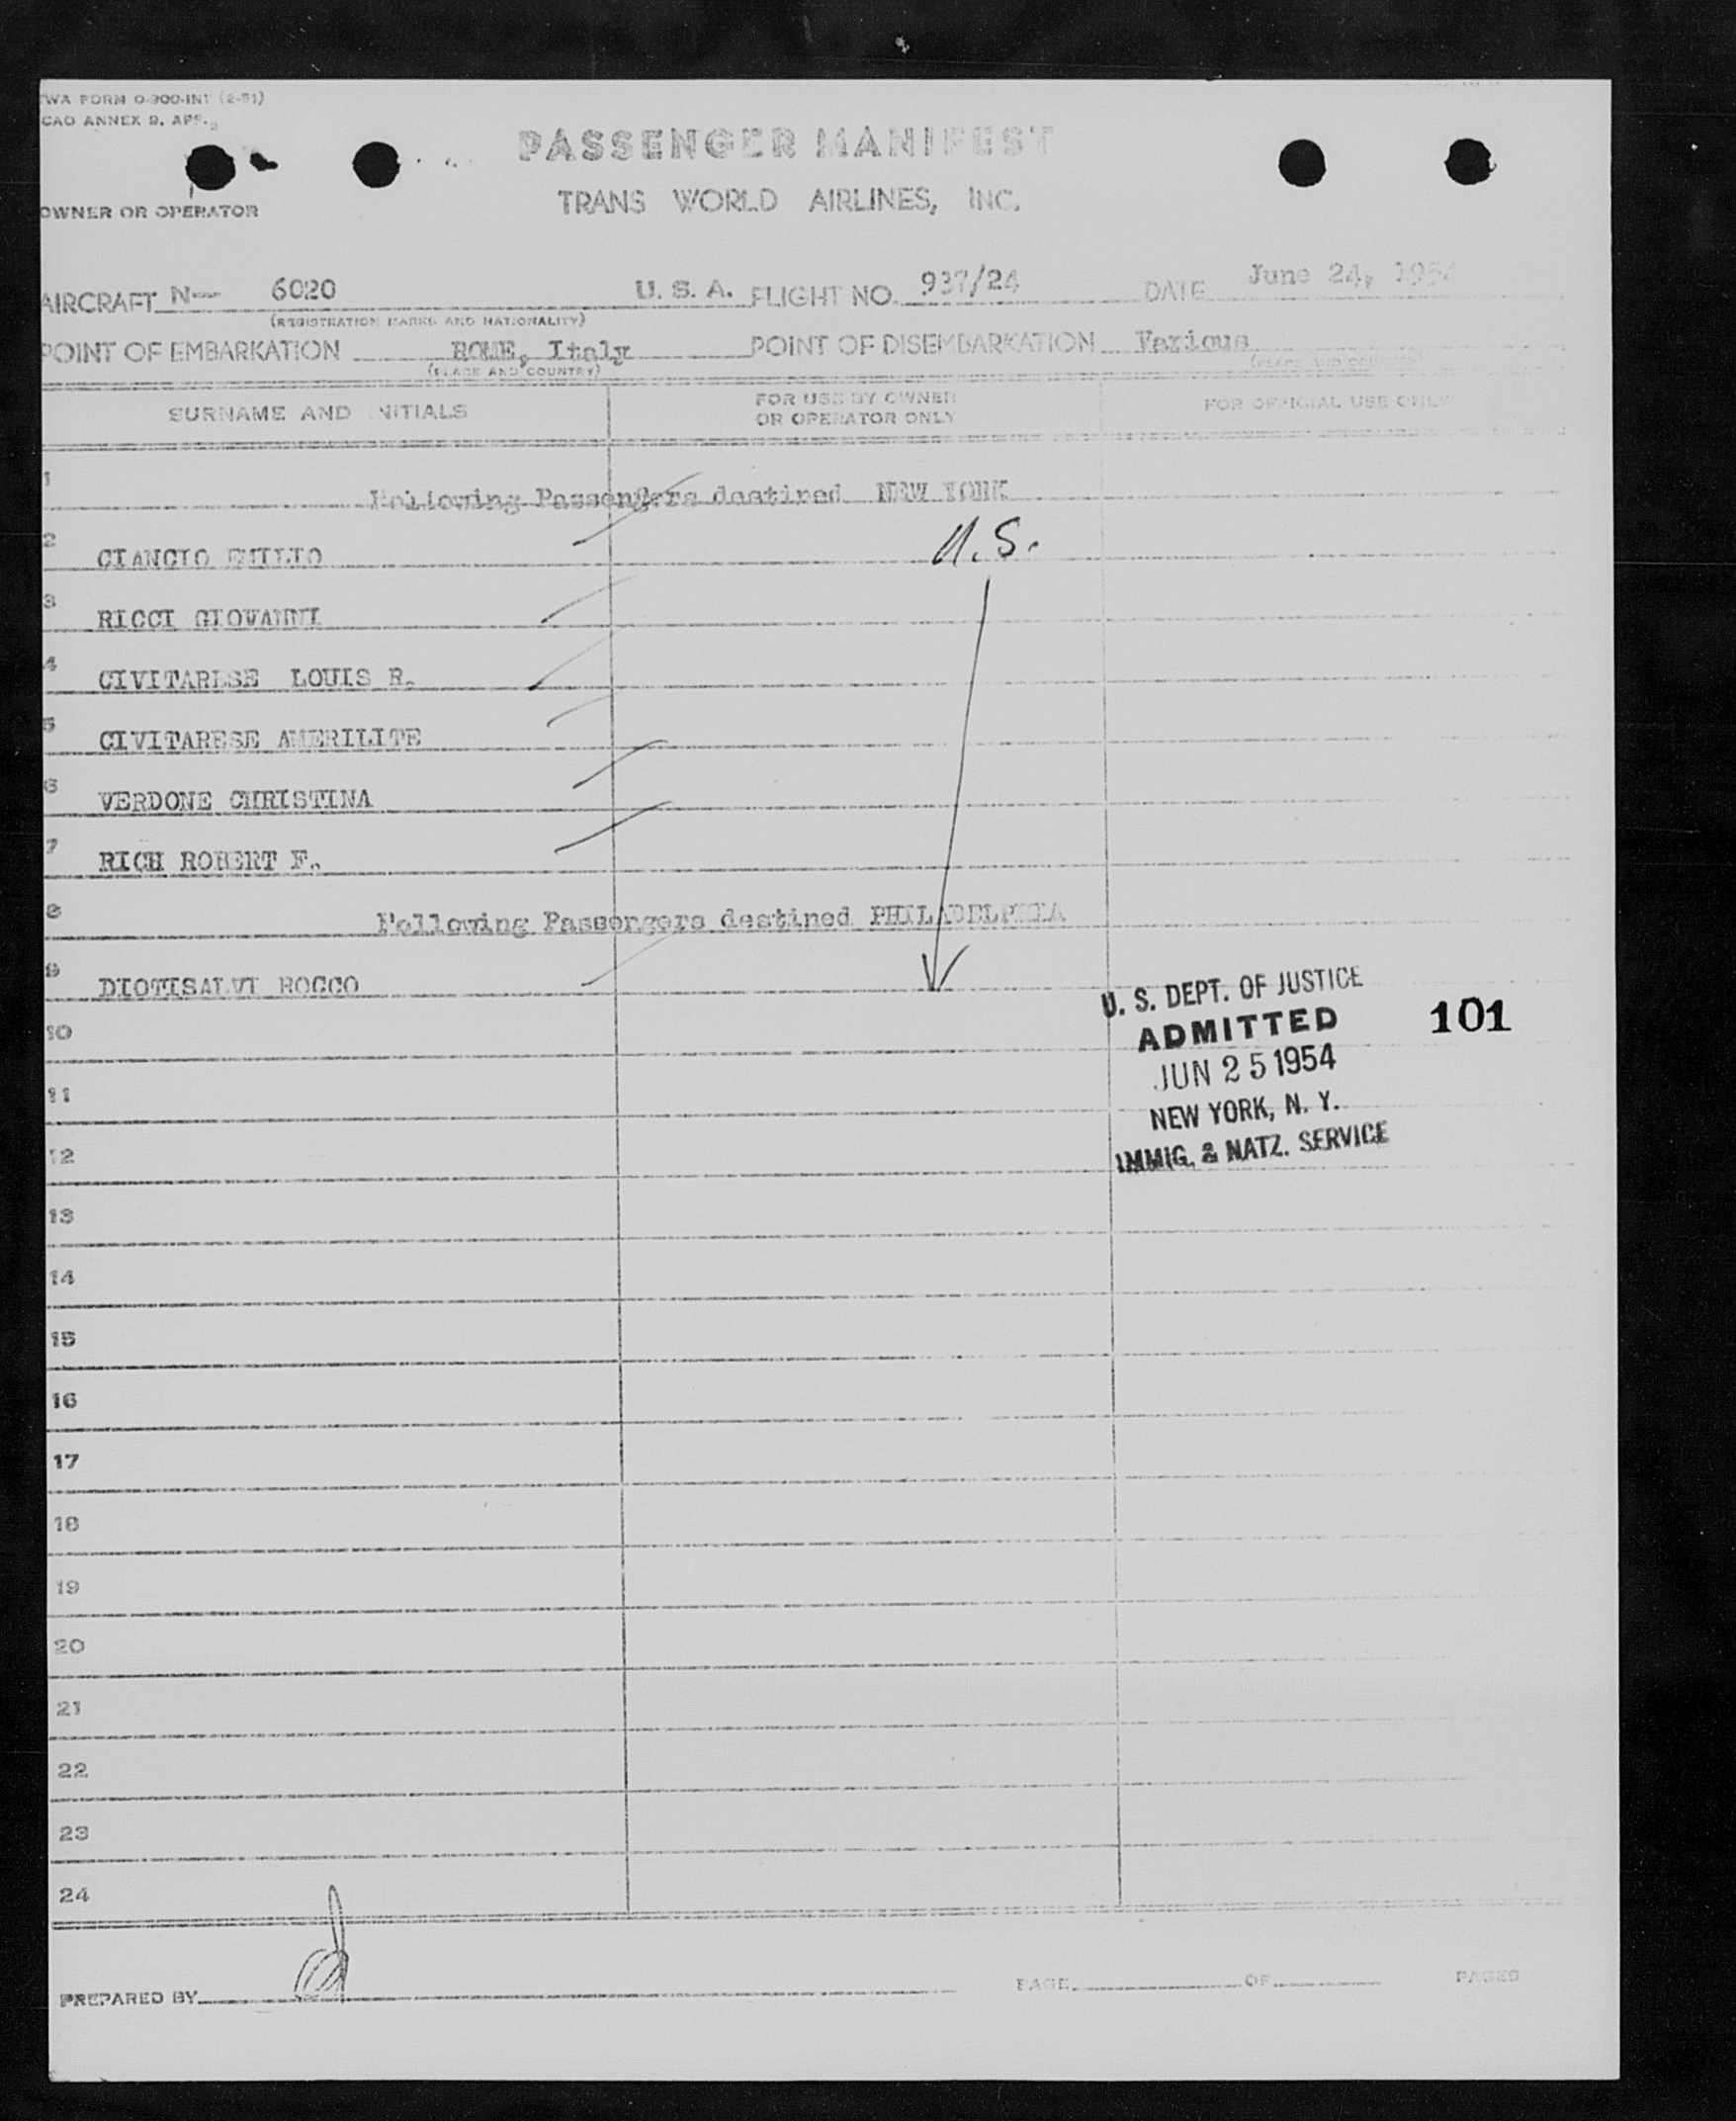 TWA FORM O-300-INT (2-51)
ICAO ANNEX 9, APP.
PASSENGER MANIFEST
OWNER OR OPERATOR TRANS WORLD AIRLINES, INC.
AIRCRAFT N— 6020 U. S. A. FLIGHT NO. 937/24 DATE June 24, 1954
(REGISTRATION MARKS AND NATIONALITY)
POINT OF EMBARKATION ROME, Italy POINT OF DISEMBARKATION Various
(PLACE AND COUNTRY) (PLACE AND COUNTRY)
SURNAME AND INITIALS FOR USE BY OWNER OR OPERATOR ONLY FOR OFFICIAL USE ONLY
1 Following Passengers destined NEW YORK
2 CIANCIO EMILIO U.S.
3 RICCI GIOVANNI
4 CIVITARESE LOUIS R.
5 CIVITARESE AMERILITE
6 VERDONE CHRISTINA
7 RICH ROBERT F.
8 Following Passengers destined PHILADELPHIA
9 DIOTISALVI ROCCO
U. S. DEPT. OF JUSTICE
ADMITTED 101
JUN 25 1954
NEW YORK, N. Y.
IMMIG. & NATZ. SERVICE
10
11
12
13
14
15
16
17
18
19
20
21
22
23
24
PREPARED BY PAGE OF PAGES